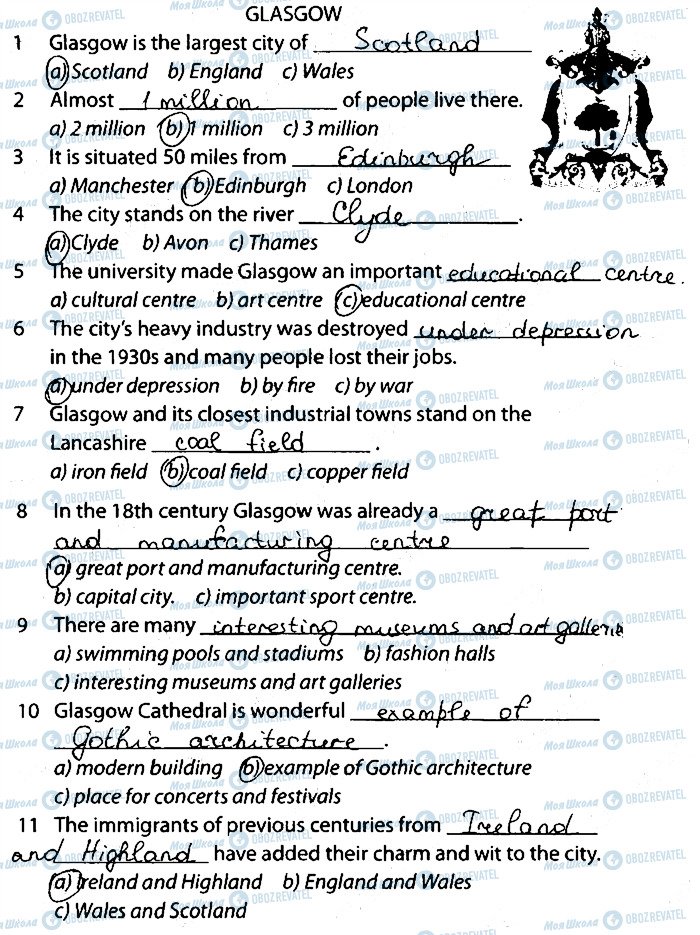 GLASGOW
1 Glasgow is the largest city of Scotland
a) Scotland b) England c) Wales
2 Almost 1 million of people live there.
a) 2 million b) 1 million c) 3 million
3 It is situated 50 miles from Edinburgh
a) Manchester b) Edinburgh c) London
4 The city stands on the river Clyde.
a) Clyde b) Avon c) Thames
5 The university made Glasgow an important educational centre.
a) cultural centre b) art centre c) educational centre
6 The city's heavy industry was destroyed under depression
in the 1930s and many people lost their jobs.
a) under depression b) by fire c) by war
7 Glasgow and its closest industrial towns stand on the
Lancashire coal field.
a) iron field b) coal field c) copper field
8 In the 18th century Glasgow was already a great port
and manufacturing centre
a) great port and manufacturing centre.
b) capital city. c) important sport centre.
9 There are many interesting museums and art galleries
a) swimming pools and stadiums b) fashion halls
c) interesting museums and art galleries
10 Glasgow Cathedral is wonderful example of
Gothic architecture.
a) modern building b) example of Gothic architecture
c) place for concerts and festivals
11 The immigrants of previous centuries from Ireland
and Highland have added their charm and wit to the city.
a) Ireland and Highland b) England and Wales
c) Wales and Scotland
Моя Школа OBOZREVATEL